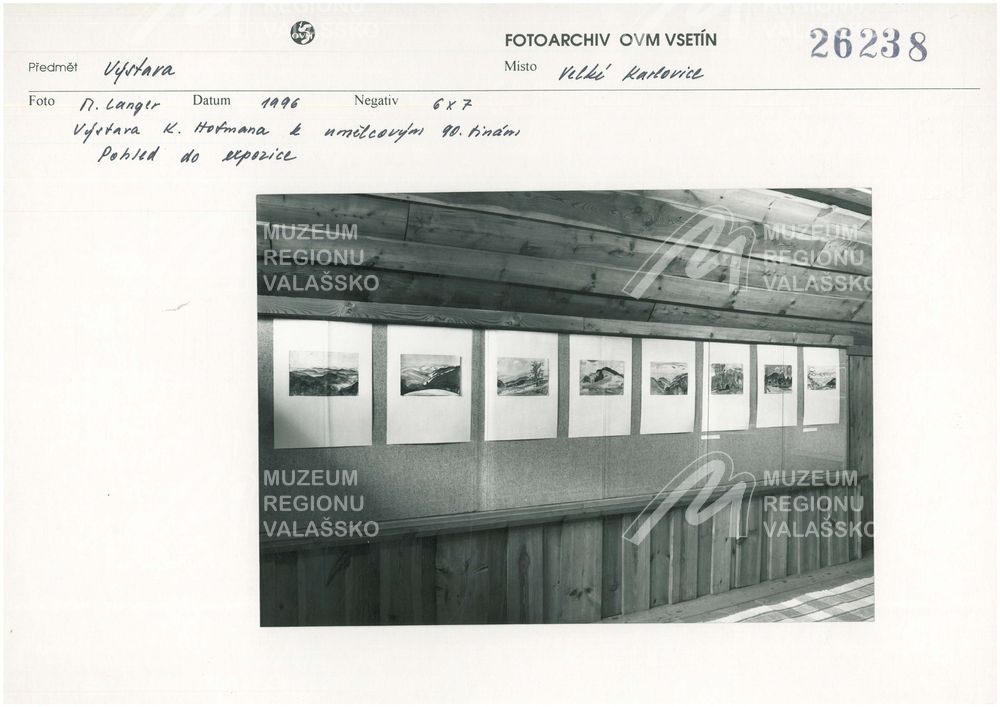 OVM
FOTOARCHIV OVM VSETÍN
26238
Předmět Výstava
Misto Velké Karlovice
Foto M. Langer Datum 1996 Negativ 6x7
Výstava K. Hofmana k umělcovým 90. tinám
Pohled do expozice
MUZEUM
REGIONU
VALAŠSKO
MUZEUM
REGIONU
VALAŠSKO
MUZEUM
REGIONU
VALAŠSKO
MUZEUM
REGIONU
VALAŠSKO
REGIONU
VALAŠSKO
REGIONU
VALAŠSKO